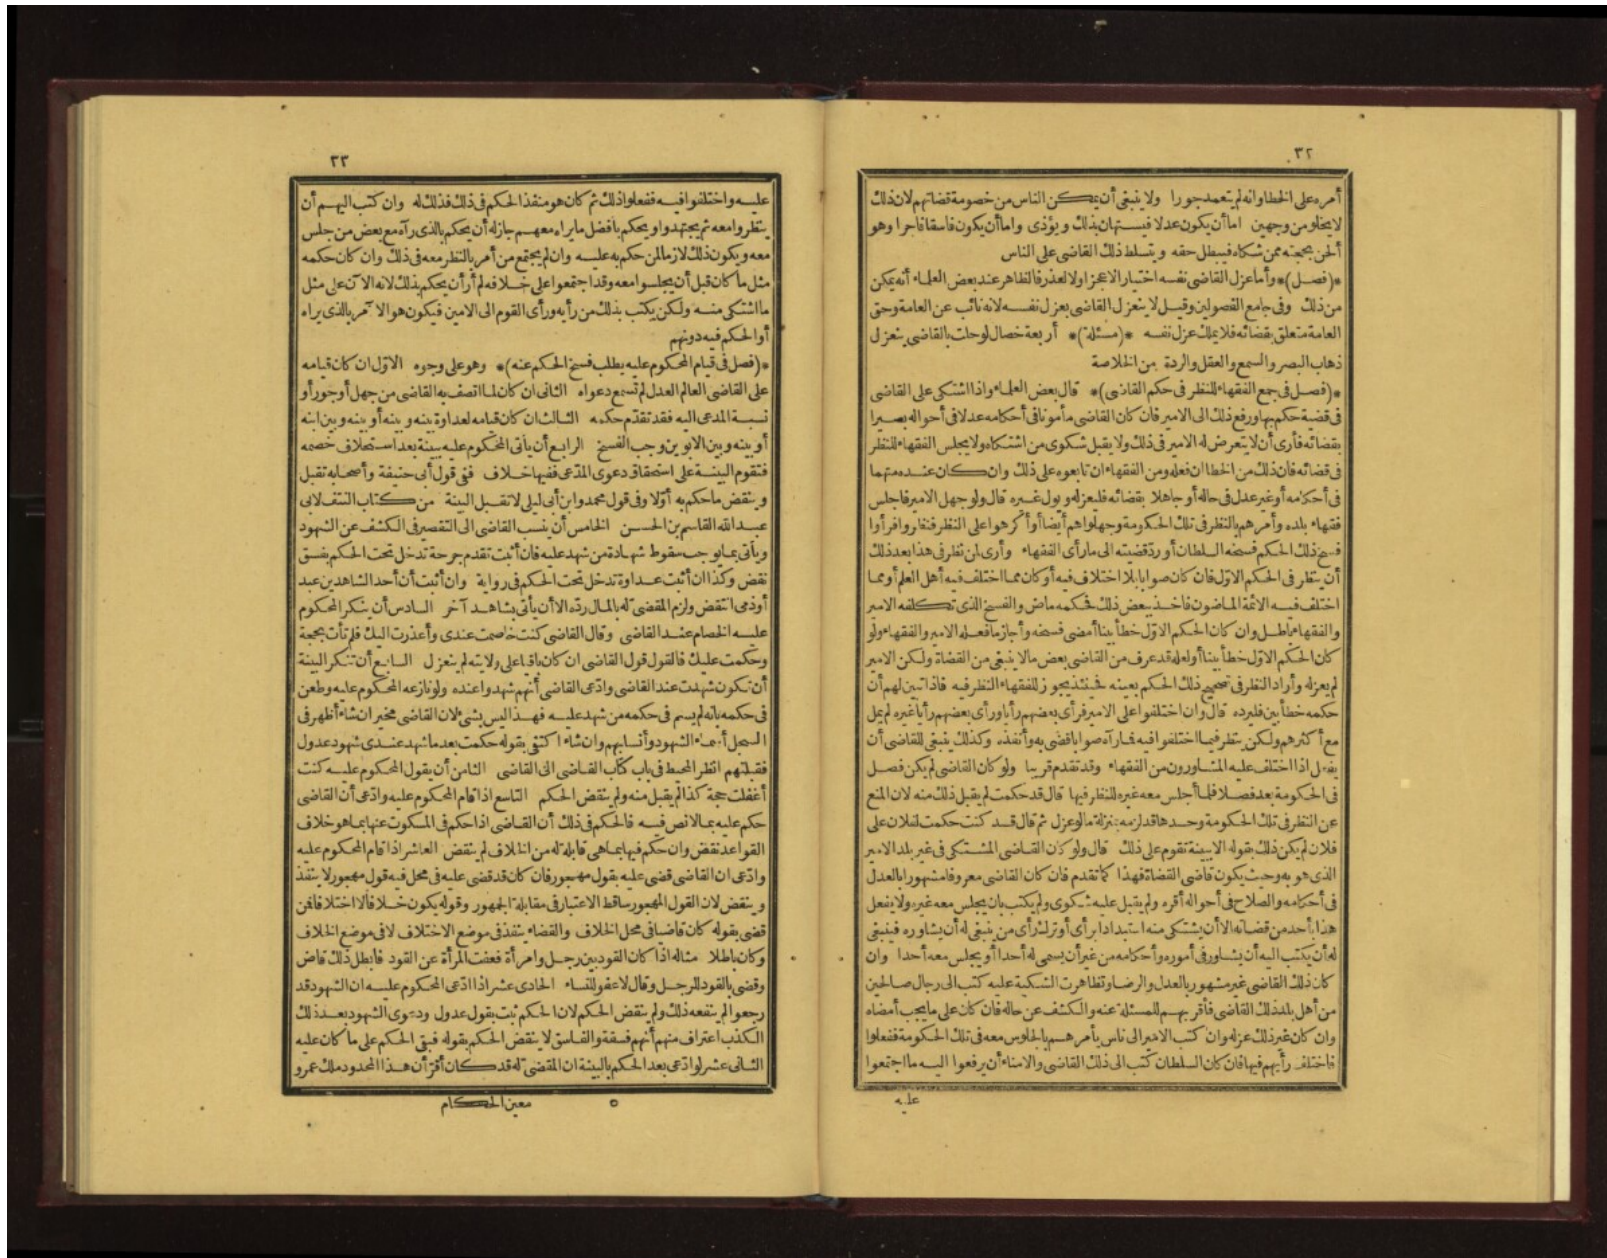 ٣٢
أمره على الخطا وانه لم يتعمد جورا ولا ينبغى أن يمكن الناس من خصومة قضاتهم لان ذلك
لا يخلو من وجهين اما أن يكون عدلا فيستهان بذلك ويؤذى واما أن يكون فاسقا فاجرا وهو
ألحن بحجته ممن شكاه فيبطل حقه ويتسلط ذلك القاضى على الناس
*(فصل)* وأما عزل القاضى نفسه اختيارا لا عجزا ولا لعذر فالظاهر عند بعض العلماء أنه يمكن
من ذلك وفى جامع الفصولين وقيل لا ينعزل القاضى بعزل نفسه لانه نائب عن العامة وحق
العامة متعلق بقضائه فلا يملك عزل نفسه *(مسئلة)* أربعة خصال لو حلت بالقاضى ينعزل
ذهاب البصر والسمع والعقل والردة من الخلاصة
*(فصل فى جمع الفقهاء للنظر فى حكم القاضى)* قال بعض العلماء واذا اشتكى على القاضى
فى قضية حكم بها ورفع ذلك الى الامير فان كان القاضى مأمونا فى أحكامه عدلا فى أحواله بصيرا
بقضائه فأرى أن لا يتعرض له الامير فى ذلك ولا يقبل شكوى من اشتكاه ولا يجلس الفقهاء للنظر
فى قضائه فان ذلك من الخطا ان فعله ومن الفقهاء ان تابعوه على ذلك وان كان عنده متهما
فى أحكامه أو غير عدل فى حاله أو جاهلا بقضائه فليعزله ويول غيره قال ولو جهل الامير فاجلس
فقهاء بلده وأمرهم بالنظر فى تلك الحكومة وجهلواهم أيضا أو أكرهوا على النظر فنظروا فرأوا
فسخ ذلك الحكم ففسخه السلطان أو رد قضيته الى ما رأى الفقهاء وأرى لمن نظر فى هذا بعد ذلك
أن ينظر فى الحكم الاول فان كان صوابا بلا اختلاف فيه أو كان مما اختلف فيه أهل العلم أو مما
اختلف فيه الائمة الماضون فاخذ ببعض ذلك فحكمه ماض والفسخ الذى تكلفه الامير
والفقهاء باطل وان كان الحكم الاول خطأ بينا أمضى فسخه وأجاز ما فعله الامير والفقهاء ولو
كان الحكم الاول خطأ بينا أو لعله قد عرف من القاضى بعض ما لا ينبغى من القضاة ولكن الامير
لم يعزله وأراد النظر فى تصحيح ذلك الحكم بعينه فحينئذ يجوز للفقهاء النظر فيه فاذا تبين لهم أن
حكمه خطأ بين فليرده قال وان اختلفوا على الامير فرأى بعضهم رأيا ورأى بعضهم رأيا غيره لم يمل
مع أكثرهم ولكن ينظر فيما اختلفوا فيه فما رآه صوابا قضى به وأنفذه وكذلك ينبغى للقاضى أن
يفعل اذا اختلف عليه المشاورون من الفقهاء وقد تقدم قريبا ولو كان القاضى لم يكن فصل
فى الحكومة بعد فصلا فلما أجلس معه غيره للنظر فيها قال قد حكمت لم يقبل ذلك منه لان المنع
عن النظر فى تلك الحكومة وحدها قد لزمه بمنزلة ما لو عزل ثم قال قد كنت حكمت لفلان على
فلان لم يكن ذلك بقوله الا ببينة تقوم على ذلك قال ولو كان القاضى المشتكى فى غير بلد الامير
الذى هو به وحيث يكون قاضى القضاة فهذا كما تقدم فان كان القاضى معروفا مشهورا بالعدل
فى أحكامه والصلاح فى أحواله أقره ولم يقبل عليه شكوى ولم يكتب بان يجلس معه غيره ولا يفعل
هذا بأحد من قضاته الا أن يشتكى منه استبدادا برأى أو ترك رأى من ينبغى له أن يشاوره فينبغى
له أن يكتب اليه أن يشاور فى أموره وأحكامه من غير أن يسمى له أحدا أو يجلس معه أحدا وان
كان ذلك القاضى غير مشهور بالعدل والرضا وتظاهرت الشكية عليه كتب الى رجال صالحين
من أهل بلد ذلك القاضى فأقر بهم للمسئلة عنه والكشف عن حاله فان كان على ما يجب أمضاه
وان كان غير ذلك عزله وان كتب الامير الى ناس يأمرهم بالجلوس معه فى تلك الحكومة ففعلوا
فاختلف رأيهم فيها فان كان السلطان كتب الى ذلك القاضى والامناء أن يرفعوا اليه ما اجتمعوا
عليه
٣٣
عليه واختلفوا فيه ففعلوا ذلك ثم كان هو منفذ الحكم فى ذلك فذلك له وان كتب اليهم أن
ينظروا معه ثم يجتهدوا ويحكم بافضل ما يراه معهم جاز له أن يحكم بالذى رآه مع بعض من جلس
معه ويكون ذلك لازما لمن حكم به عليه وان لم يجتمع من أمر بالنظر معه فى ذلك وان كان حكمه
مثل ما كان قبل أن يجلسوا معه وقد اجتمعوا على خلافه لم أر أن يحكم بذلك لانه الآن على مثل
ما اشتكى منه ولكن يكتب بذلك من رأيه ورأى القوم الى الامين فيكون هو الآمر بالذى يراه
أو الحكم فيه دونهم
*(فصل فى قيام المحكوم عليه بطلب فسخ الحكم عنه)* وهو على وجوه الاول ان كان قيامه
على القاضى العالم العدل لم تسمع دعواه الثانى ان كان لما اتصف به القاضى من جهل أو جور أو
نسبة المدعى اليه فقد تقدم حكمه الثالث ان كان قيامه لعداوة بينه وبينه أو بينه وبين ابنه
أو بينه وبين الابوين وجب الفسخ الرابع أن يأتى المحكوم عليه ببينة بعد استحلاف خصمه
فتقوم البينة على استحقاق دعوى المدعى ففيها خلاف ففى قول أبى حنيفة وأصحابه تقبل
وينقض ما حكم به أولا وفى قول محمد وابن أبى ليلى لا تقبل البينة من كتاب النتف لابى
عبد الله القاسم بن الحسن الخامس أن ينسب القاضى الى التقصير فى الكشف عن الشهود
ويأتى بما يوجب سقوط شهادة من شهد عليه فان أثبت تقدم جرحة تدخل تحت الحكم بفسق
نقض وكذا ان أثبت عداوة تدخل تحت الحكم فى رواية وان أثبت أن أحد الشاهدين عبد
أو ذمى انتقض ولزم المقضى له بالمال رده الا أن يأتى بشاهد آخر السادس أن ينكر المحكوم
عليه الخصام عند القاضى وقال القاضى كنت خاصمت عندى وأعذرت اليك فلم تأت بحجة
وحكمت عليك فالقول قول القاضى ان كان باقيا على ولايته لم ينعزل السابع أن تنكر البينة
أن تكون شهدت عند القاضى وادعى القاضى أنهم شهدوا عنده ولو نازعه المحكوم عليه وطعن
فى حكمه بانه لم يسم فى حكمه من شهد عليه فهذا ليس بشئ لان القاضى مخير ان شاء أظهر فى
السجل أسماء الشهود وأنسابهم وان شاء اكتفى بقوله حكمت بعد ما شهد عندى شهود عدول
فقبلتهم انظر المحيط فى باب كتاب القاضى الى القاضى الثامن أن يقول المحكوم عليه كنت
أغفلت حجة كذا لم يقبل منه ولم ينقض الحكم التاسع اذا قام المحكوم عليه وادعى أن القاضى
حكم عليه بما لا نص فيه فالحكم فى ذلك أن القاضى اذا حكم فى المسكوت عنها بما هو خلاف
القواعد نقض وان حكم فيها بما هى قابلة له من الخلاف لم ينقض العاشر اذا قام المحكوم عليه
وادعى ان القاضى قضى عليه بقول مهجور فان كان قد قضى عليه فى محل فيه قول مهجور لا ينفذ
وينقض لان القول المهجور ساقط الاعتبار فى مقابلة الجمهور وقوله يكون خلافا لا اختلافا فمن
قضى بقوله كان قاضيا فى محل الخلاف والقضاء ينفذ فى موضع الاختلاف لا فى موضع الخلاف
وكان باطلا مثاله اذا كان القود بين رجل وامرأة فعفت المرأة عن القود فابطل ذلك قاض
وقضى بالقود للرجل وقال لا عفو للنساء الحادى عشر اذا ادعى المحكوم عليه ان الشهود قد
رجعوا لم ينفعه ذلك ولم ينقض الحكم لان الحكم ثبت بقول عدول ودعوى الشهود بعد ذلك
الكذب اعتراف منهم أنهم فسقة والفاسق لا ينقض الحكم بقوله فبقى الحكم على ما كان عليه
الثانى عشر لو ادعى بعد الحكم بالبينة ان المقضى له قد كان أقر أن هذا المحدود ملك عمرو
٥ معين الحكام